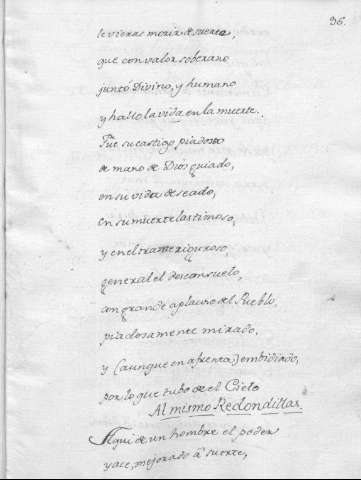 36.
le vieras morir de suerte,
que con valor soberano
juntó Divino, y humano
y hallo la vida en la muerte.
Fue su castigo piadoso
de mano de Dios guiado,
en su vida deseado,
en su muerte lastimoso,
y en el trance riguroso,
general el desconsuelo,
con grande aplauso del Pueblo,
piadosamente mirado,
y (aunque en afrenta) embidiado,
por lo que tubo de el Cielo
Al mismo Redondillas.
Aqui de un hombre el poder
yace, mejorado en suerte,